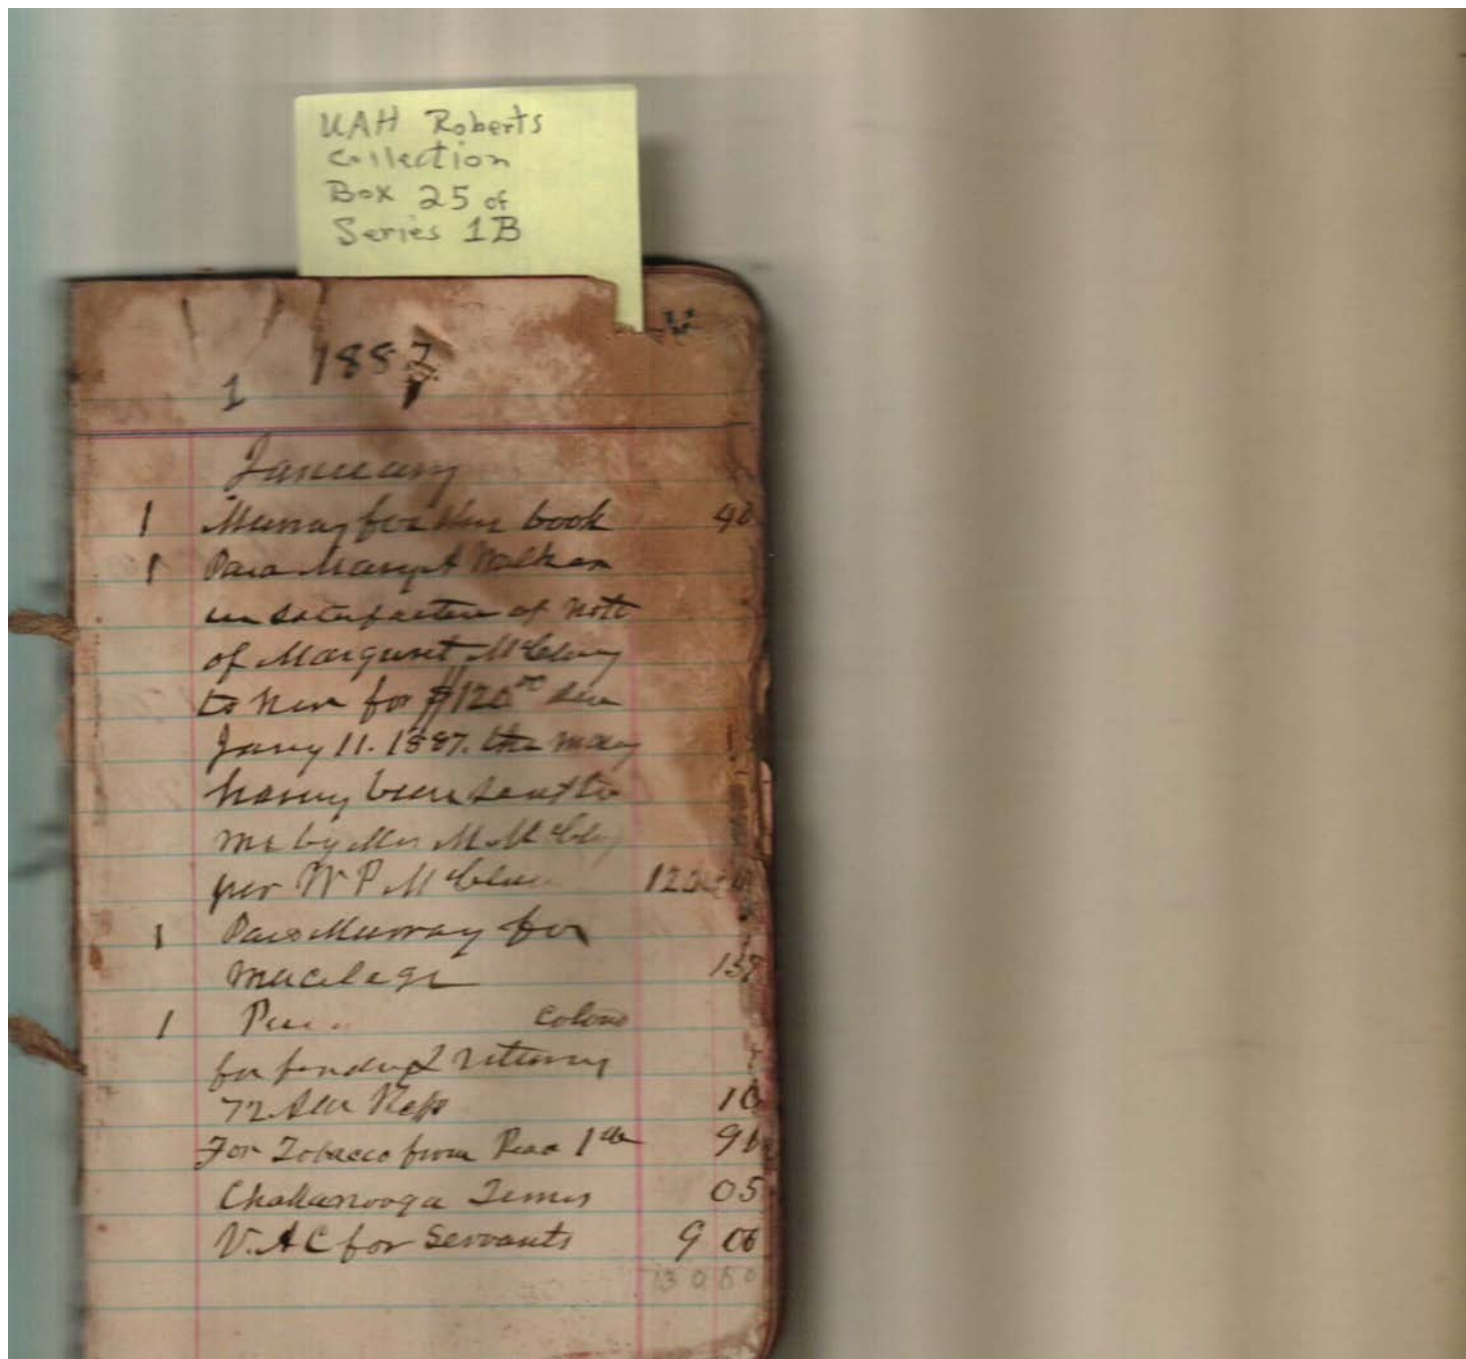 UAH Roberts
Collection
Box 25 of
Series 1B
1887
1
January
1 Murray for this book 40
1 Paid Mary A Walker
in satisfaction of note
of Margaret McClung
to her for $120.00 due
Jany 11. 1887. the money
having been sent to
me by Mrs M McClung
per W P McClung 120
1 Paid Murray for
mucilage 15
1 colored
for & returning
72 10
For Tobacco from 1 lb 90
Chattanooga Times 05
V.A C for Servants 9 00